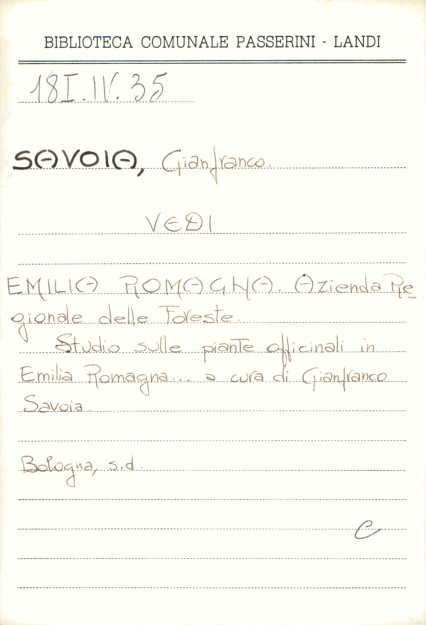 BIBLIOTECA COMUNALE PASSERINI - LANDI
18I.IV.35
SAVOIA, Gianfranco.
VEDI
EMILIA ROMAGNA. Azienda Re
gionale delle Foreste.
Studio sulle piante officinali in
Emilia Romagna... a cura di Gianfranco
Savoia.
Bologna, s.d.
C